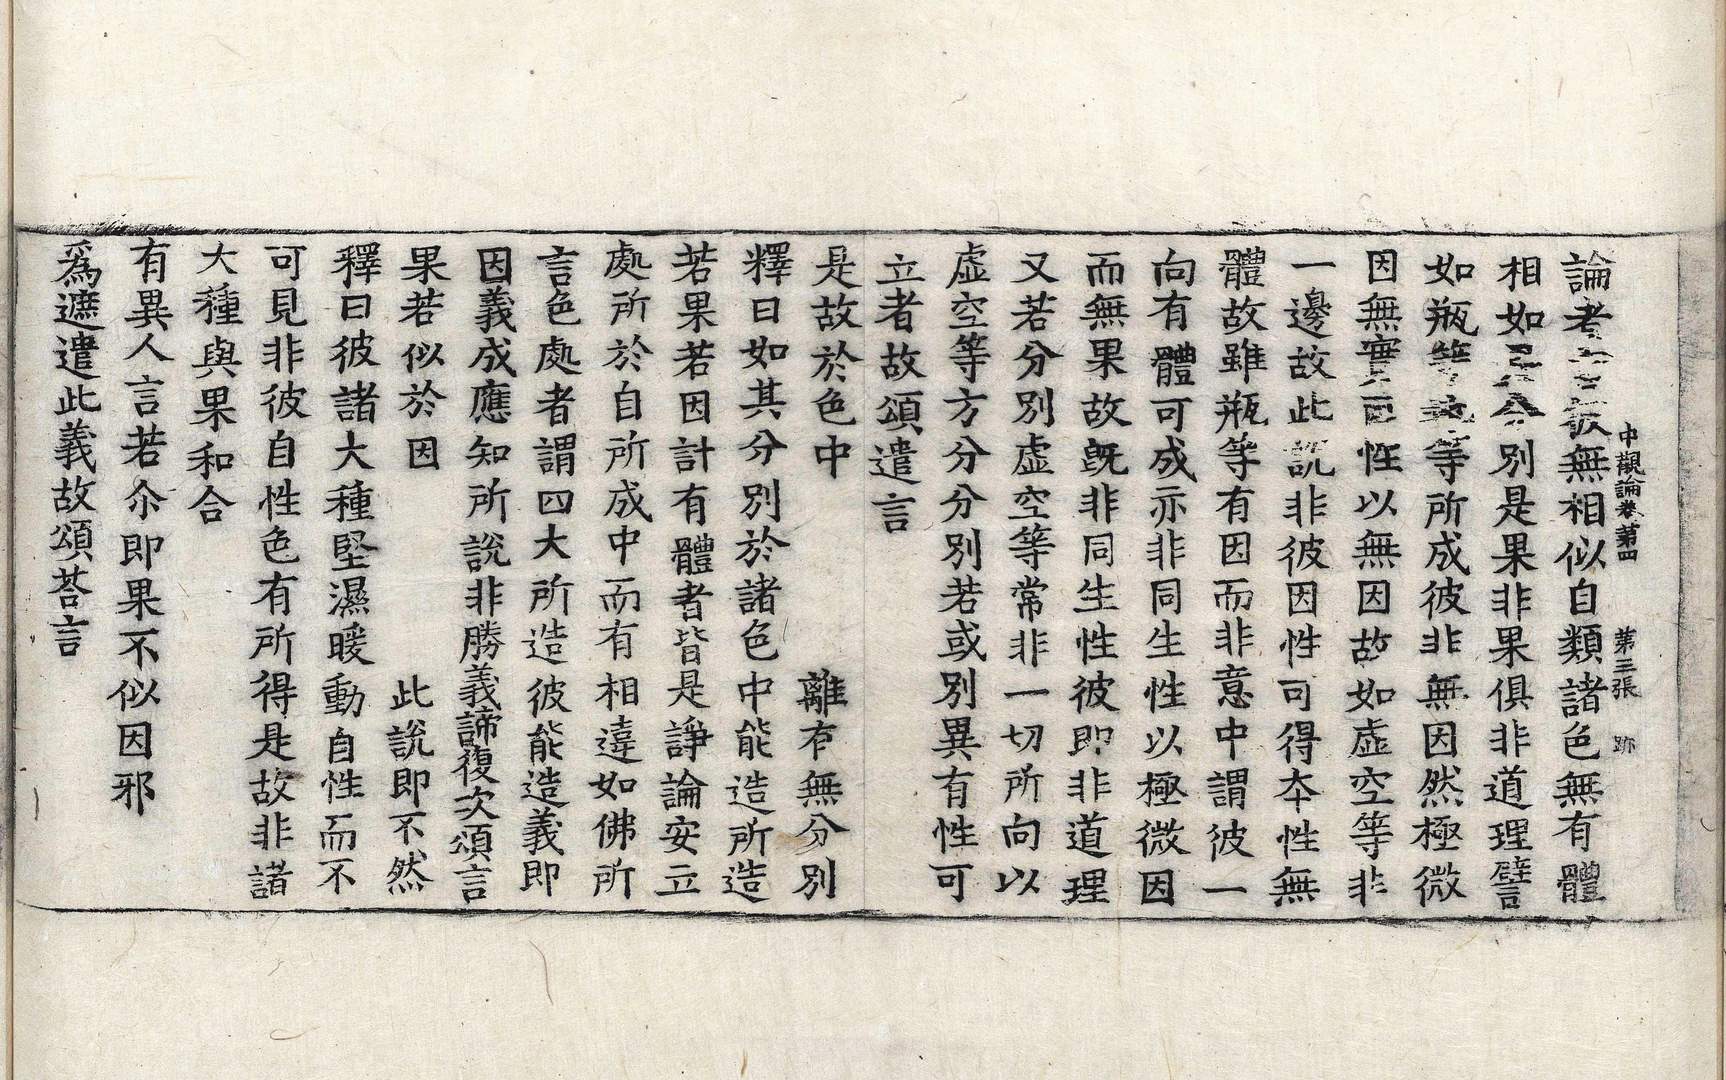 中觀論卷第四　第三張　跡
論者無相似自類諸色無有體
相如分別是果非果俱非道理譬
如瓶等等所成彼非無因然極微
因無實自性以無因故如虛空等非
一邊故此說非彼因性可得本性無
體故雖瓶等有因而非意中謂彼一
向有體可成亦非同生性以極微因
而無果故旣非同生性彼即非道理
又若分別虛空等常非一切所向以
虛空等方分分別若或別異有性可
立者故頌遣言
是故於色中　離有無分別
釋曰如其分別於諸色中能造所造
若果若因計有體者皆是諍論安立
處所於自所成中而有相違如佛所
言色處者謂四大所造彼能造義即
因義成應知所說非勝義諦復次頌言
果若似於因　此說即不然
釋曰彼諸大種堅濕暖動自性而不
可見非彼自性色有所得是故非諸
大種與果和合
有異人言若尒即果不似因邪
爲遮遣此義故頌荅言